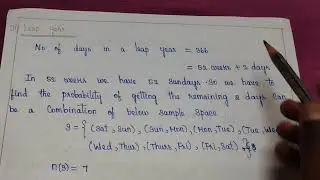 Leap year
No of days in a leap year = 366
= 52 weeks + 2 days
In 52 weeks we have 52 sundays. so we have to
find the probability of getting the remaining 2 days can
be a Combination of below sample space
S = { (Sat, Sun), (Sun, Mon), (Mon, Tue), (Tue, Wed)
(Wed, Thur), (Thurs, Fri), (Fri, Sat) }
n(S) = 7